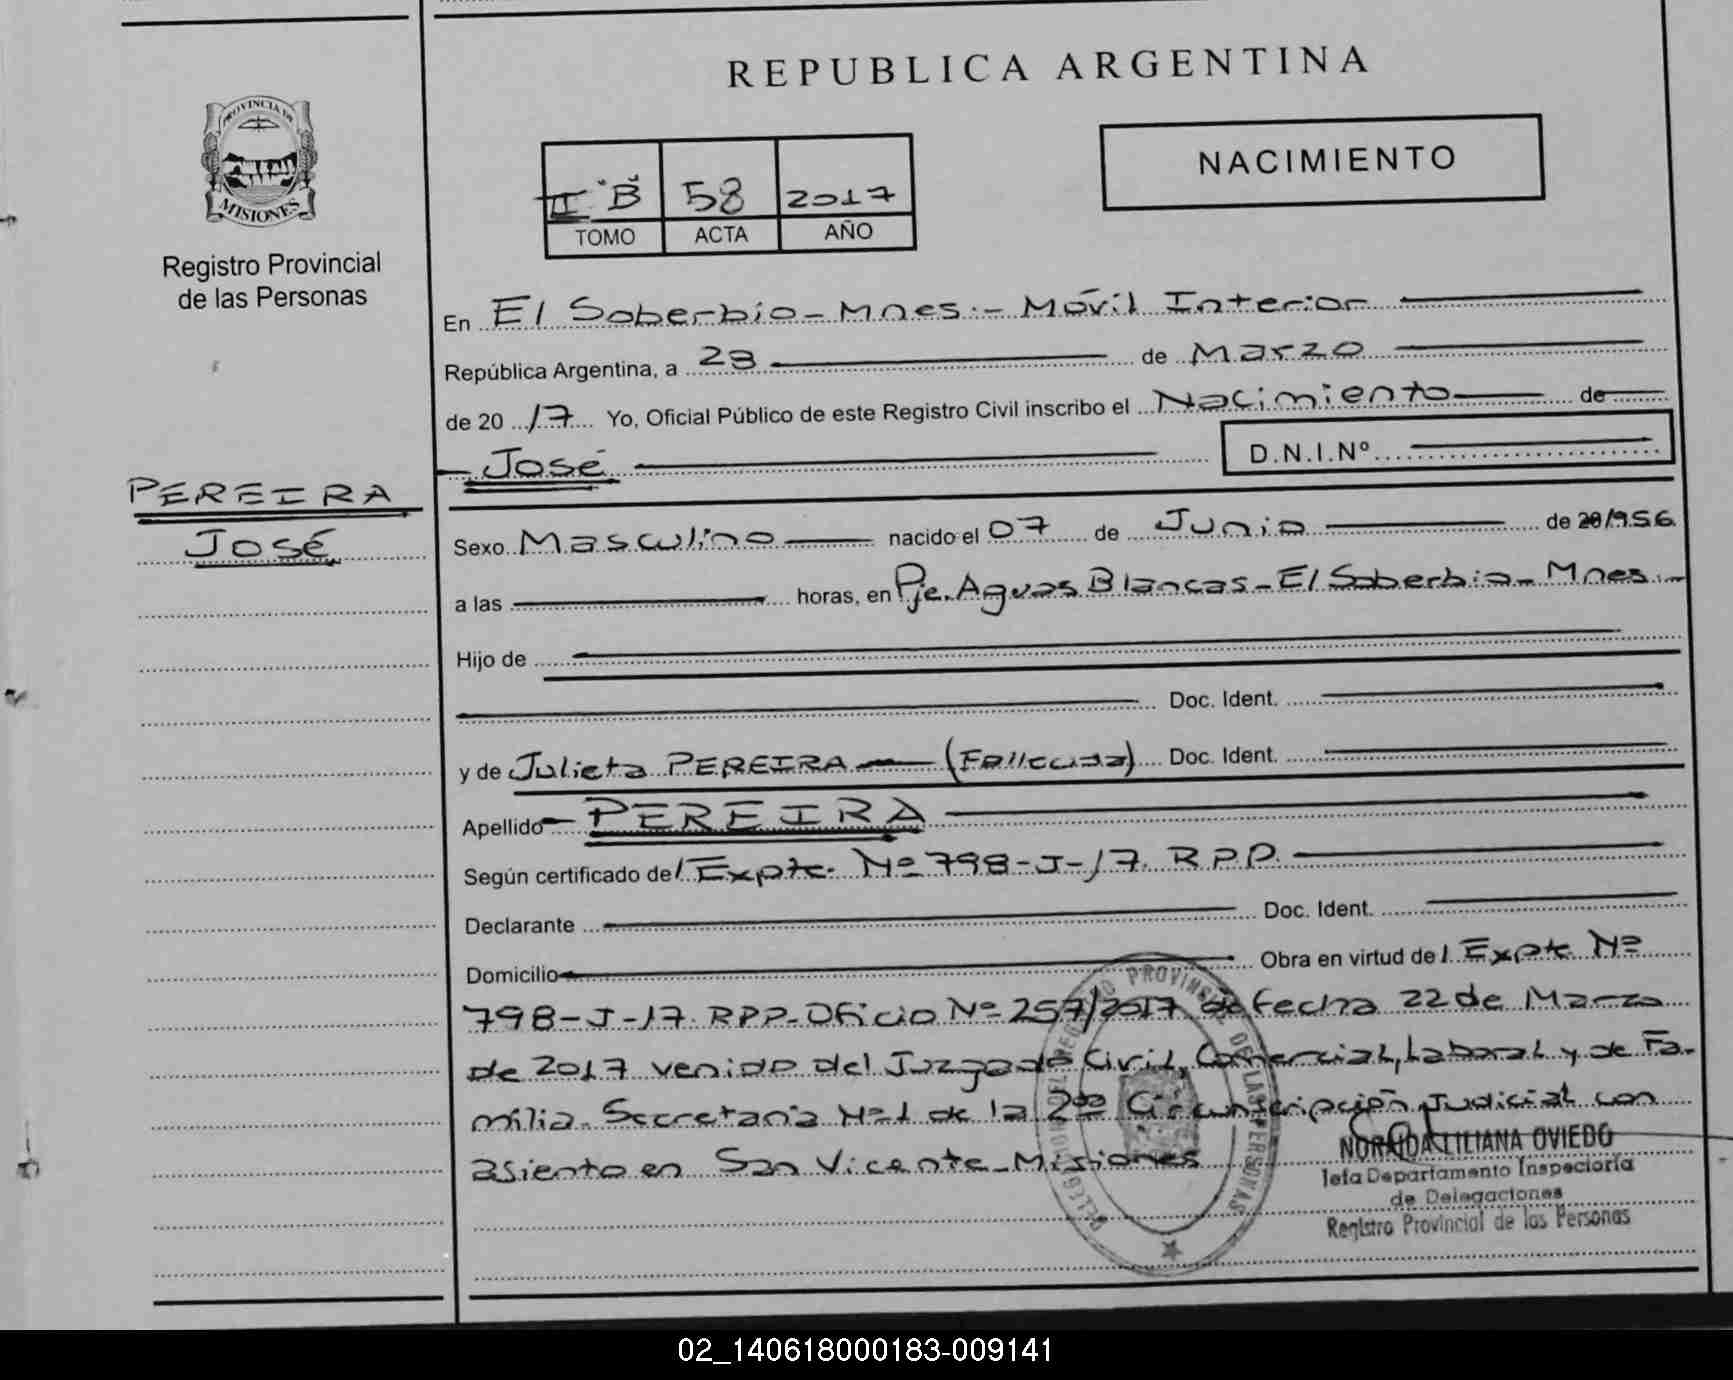 REPUBLICA ARGENTINA
PROVINCIA DE
MISIONES
Registro Provincial
de las Personas
II "B" 58 2017
TOMO ACTA AÑO
NACIMIENTO
En El Soberbio - Mnes.- Móvil Interior
República Argentina, a 23 de Marzo
de 2017 Yo, Oficial Público de este Registro Civil inscribo el Nacimiento de
José D.N.I.Nº
PEREIRA
José
Sexo Masculino nacido el 07 de Junio de 20/1956.
a las horas, en Pje. Aguas Blancas - El Soberbio - Mnes.-
Hijo de
Doc. Ident.
y de Julieta PEREIRA (Fallecida) Doc. Ident.
Apellido PEREIRA
Según certificado del Expte. Nº 798-J-17. R.P.P.
Declarante Doc. Ident.
Domicilio Obra en virtud del Expte Nº
798-J-17. RPP-Oficio Nº 257/2017 de fecha 22 de Marzo
de 2017 venido del Juzgado Civil, Comercial, Laboral y de Fa-
milia. Secretaria Nº1 de la 2da Circunscripción Judicial con
asiento en San Vicente - Misiones
NORAIDA LILIANA OVIEDO
Jefa Departamento Inspectoría
de Delegaciones
Registro Provincial de las Personas
02_140618000183-009141